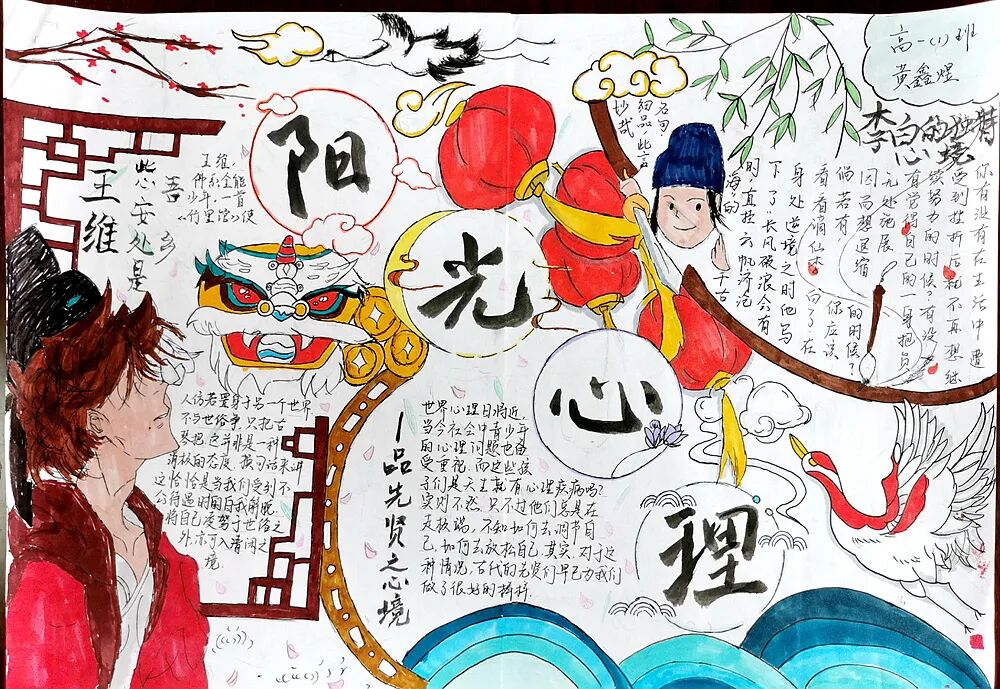 高一(1)班
黄鑫煜
阳
光
心
理
李白的心境
你有没有在生活中遭
受到挫折后就不再想继
续努力的时候？有没
有觉得自己的一身抱负
无处施展
因而想退缩
的时候？
倘若有，
你应该
看看谪仙
向了在
身处逆境之时他写
下了“长风破浪会有
时，直挂云帆济沧
海”的
千古
名句，
细品此言
妙哉
王维
此心安处是
吾乡
王维，
一个全能
少年，一首
《竹里馆》使
人仿若置身于另一个世界
不与世俗争，只把古
琴把，这并非是一种
消极的态度，换句话来讲
这恰恰是当我们受到不
公待遇时的自我调脱
将自己凌驾于世俗之
外，亦可入清闲之
境。
—品先贤之心境
世界心理日将近，
当今社会中青少年
的心理问题也备
受重视，而这些孩
子们是天生就有心理疾病吗？
实则不然，只不过他们总是在
走极端，不知如何去调节自
己，如何去放松自己，其实，对于这
种情况，古代的先贤们早已为我们
做了很好的榜样。